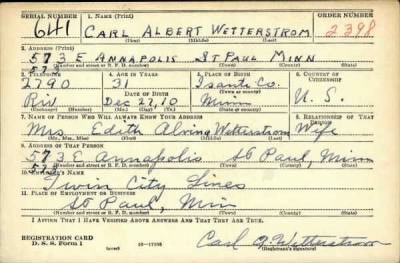 SERIAL NUMBER 1. NAME (Print) ORDER NUMBER
641 CARL ALBERT WETTERSTROM 2398
(First) (Middle) (Last)
2. ADDRESS (Print)
573 E ANNAPOLIS ST PAUL MINN
(Number and street or R. F. D. number) (Town) (County) (State)
3. TELEPHONE 4. AGE IN YEARS 5. PLACE OF BIRTH 6. COUNTRY OF CITIZENSHIP
2790 31 Isanti Co.
DATE OF BIRTH (Town or county)
Riv Dec 27, 10 Minn U. S.
(Exchange) (Number) (Mo.) (Day) (Yr.) (State or country)
7. NAME OF PERSON WHO WILL ALWAYS KNOW YOUR ADDRESS 8. RELATIONSHIP OF THAT PERSON
Mrs. Edith Wetterstrom Wife
(Mr., Mrs., Miss) (First) (Middle) (Last)
9. ADDRESS OF THAT PERSON
573 E. Annapolis St Paul, Minn
(Number and street or R. F. D. number) (Town) (County) (State)
10. EMPLOYER'S NAME
Twin City Lines
11. PLACE OF EMPLOYMENT OR BUSINESS
St Paul, Minn
(Number and street or R. F. D. number) (Town) (County) (State)
I AFFIRM THAT I HAVE VERIFIED ABOVE ANSWERS AND THAT THEY ARE TRUE.
REGISTRATION CARD
D. S. S. Form 1 Carl A. Wetterstrom
(Registrant's signature)